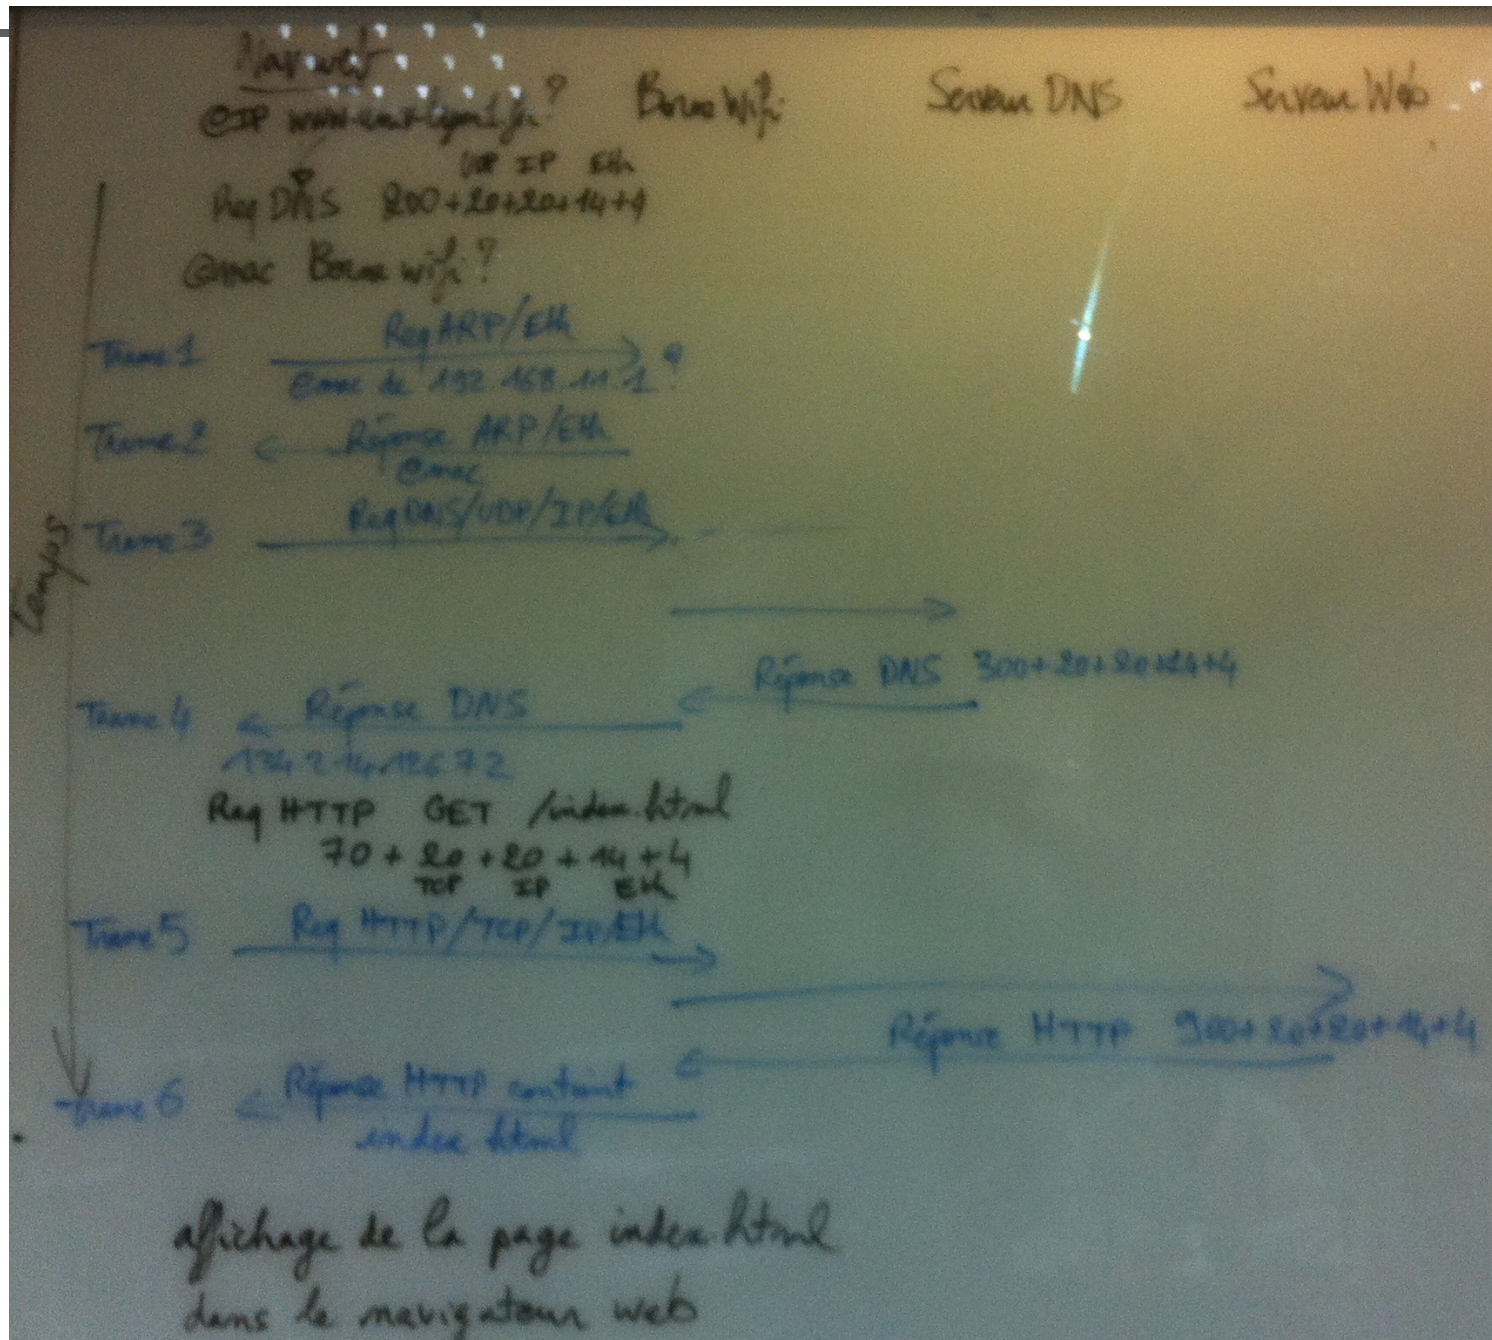 Nav web
@IP ?
Borne Wifi
Serveur DNS
Serveur Web
UDP IP Eth
Req DNS 200+20+20+14+4
@mac Borne wifi ?
Req ARP/Eth
Trame 1
@mac de 192.168.11.1 ?
Trame 2
Réponse ARP/Eth
@mac
Req DNS/UDP/IP/Eth
Trame 3
Temps
Réponse DNS 300+20+20+14+4
Trame 4
Réponse DNS
Req HTTP GET /index.html
70 + 20 + 20 + 14 + 4
TCP IP Eth
Trame 5
Req HTTP/TCP/IP/Eth
Réponse HTTP 900+20+20+14+4
Trame 6
Réponse HTTP contenant
index.html
affichage de la page index.html
dans le navigateur web